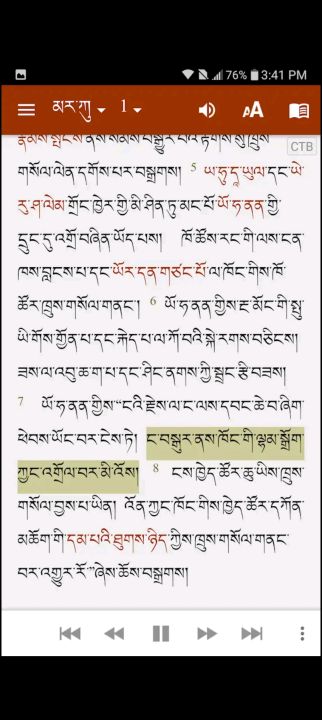 76% 3:41 PM
མར་ཀུ 1
CTB
རྣམས་སྤངས་ནས་སེམས་བསྒྱུར་བའི་རྟགས་སུ་ཁྲུས་
གསོལ་ལེན་དགོས་པར་བསྒྲགས། 5 ཡ་ཧུ་དཱ་ཡུལ་དང་ཡེ་
རུ་ཤ་ལེམ་གྲོང་ཁྱེར་གྱི་མི་ཤིན་ཏུ་མང་པོ་ཡོ་ཧ་ནན་གྱི་
དྲུང་དུ་འགྲོ་བཞིན་ཡོད་པས། ཁོ་ཚོས་རང་གི་ལས་ངན་
ཁས་བླངས་པ་དང་ཡོར་དན་གཙང་པོ་ལ་ཁོང་གིས་ཁོ་
ཚོར་ཁྲུས་གསོལ་གནང་། 6 ཡོ་ཧ་ནན་གྱིས་རྔ་མོང་གི་སྤུ་
ཡི་གོས་གྱོན་པ་དང་རྐེད་པ་ལ་ཀོ་བའི་སྐེ་རགས་བཅིངས།
ཟས་ལ་འབུ་ཆ་ག་པ་དང་ཤིང་ནགས་ཀྱི་སྦྲང་རྩི་བཟས།
7 ཡོ་ཧ་ནན་གྱིས་“ངའི་རྗེས་ལ་ང་ལས་དབང་ཆེ་བ་ཞིག་
ཕེབས་ཡོང་བར་ངེས་ཏེ། ང་བསྒུར་ནས་ཁོང་གི་ལྷམ་སྒྲོག་
ཀྱང་འགྲོལ་བར་མི་འོས། 8 ངས་ཁྱེད་ཚོར་ཆུ་ཡིས་ཁྲུས་
གསོལ་བྱས་པ་ཡིན། འོན་ཀྱང་ཁོང་གིས་ཁྱེད་ཚོར་དཀོན་
མཆོག་གི་དམ་པའི་ཐུགས་ཉིད་ཀྱིས་ཁྲུས་གསོལ་གནང་
བར་འགྱུར་རོ་”ཞེས་ཆོས་བསྒྲགས།